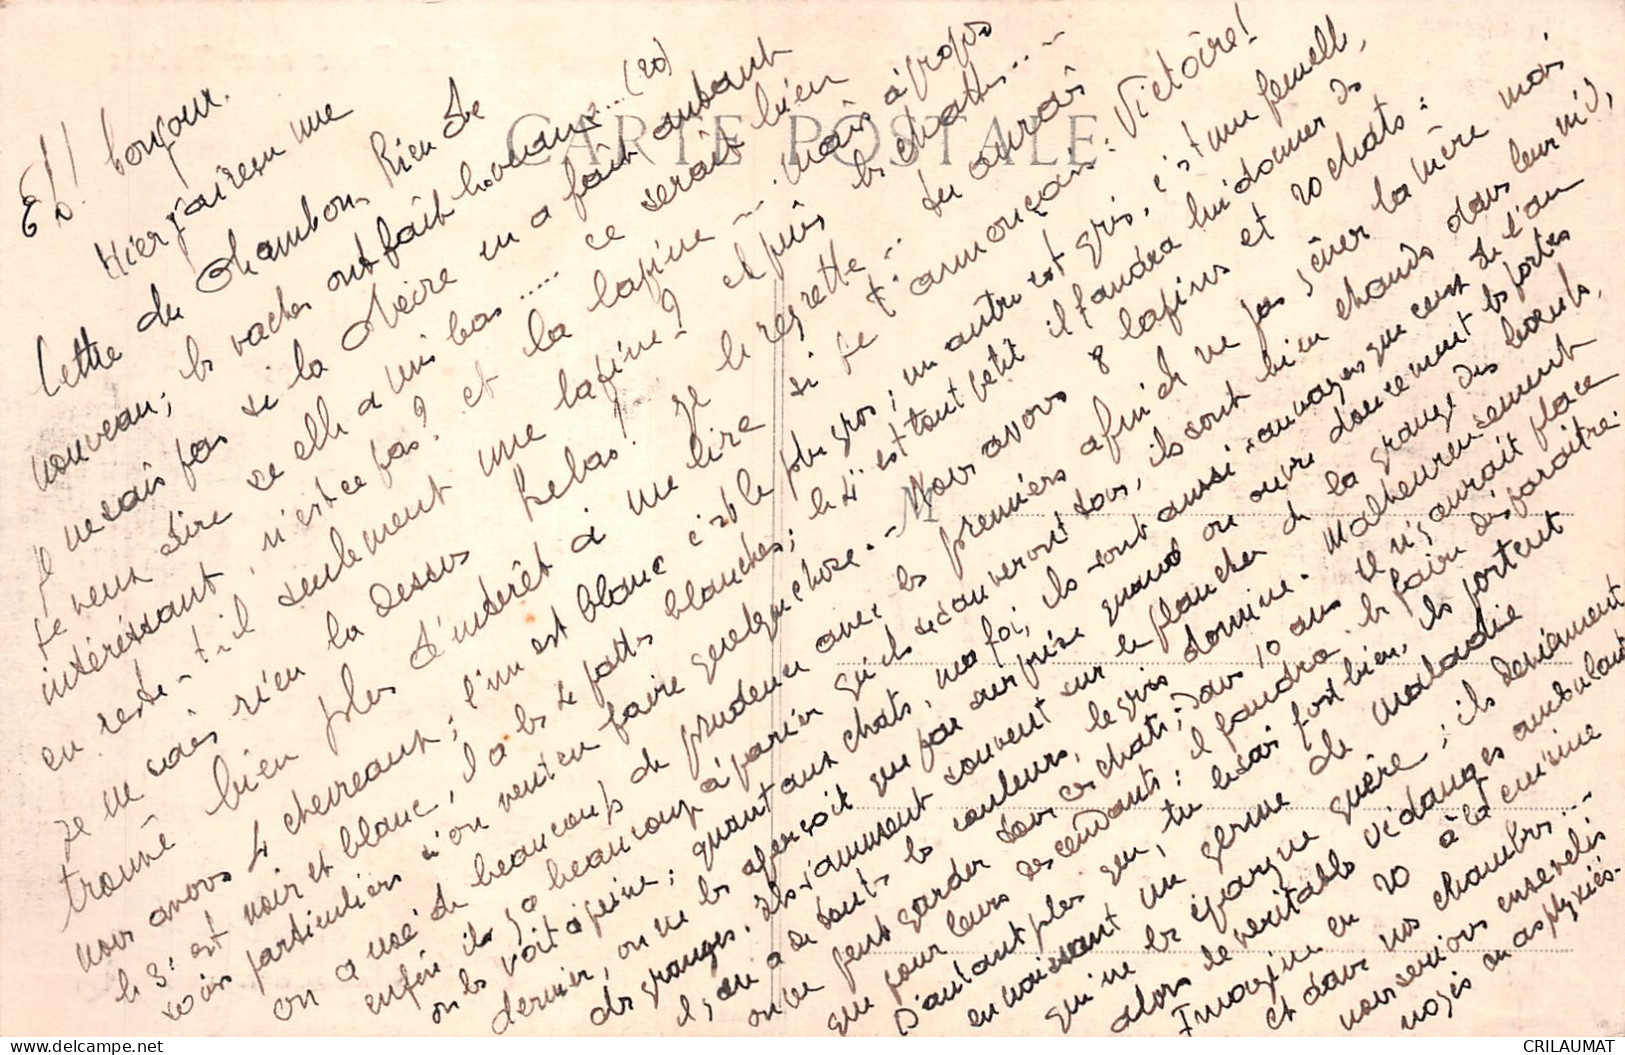 CARTE POSTALE
Eh! bonjour.
Hier j'ai reçu une
lettre du Chambon. Rien de
nouveau; les vaches ont fait les veaux.... (20)
Je ne sais pas si la Noire en a fait autant
te veux dire si elle a mis bas ..... ce serait bien
intéressant, n'est ce pas? et la lapine ~ .. mais à propos
en reste-t-il seulement une lapine? et puis les chattes...
je ne sais rien là dessus hélas! je le regrette .. tu aurais
trouvé bien plus d'intérêt à me lire si je t'annonçais: Victoire!
nous avons 4 chevreaux; l'un est blanc c'est le plus gros; un autre est gris, c'est une femelle,
le 3e est noir et blanc, il a les 4 pattes blanches; le 4e est tout petit il faudra lui donner des
soins particuliers si on veut en faire quelque chose. - Nous avons 8 lapins et 20 chats:
on a usé de beaucoup de prudence avec les premiers afin de ne pas gêner la mère mais
enfin il y a beaucoup à parier qu'ils se sauveront tous, ils sont bien chauds dans leur nid,
on les voit à peine; quant aux chats, ma foi, ils sont aussi sauvages que ceux de l'an
dernier, on ne les aperçoit que par surprise quand on ouvre doucement les portes
des granges. Ils s'amusent souvent sur le plancher de la grange des boeufs,
il y en a de toutes les couleurs, le gris domine. Malheureusement
on ne peut garder tous ces chats; dans 10 ans il n'y aurait place
que pour leurs descendants; il faudra les faire disparaître.
D'autant plus que, tu le sais fort bien, ils portent
en naissant un germe de maladie
qui ne les épargne guère; ils deviennent
alors de véritables vidanges ambulantes
Imagine en 20 à la cuisine
et dans nos chambres....
nous serions ensevelis
noyés ou asphyxiés.
CRILAUMAT